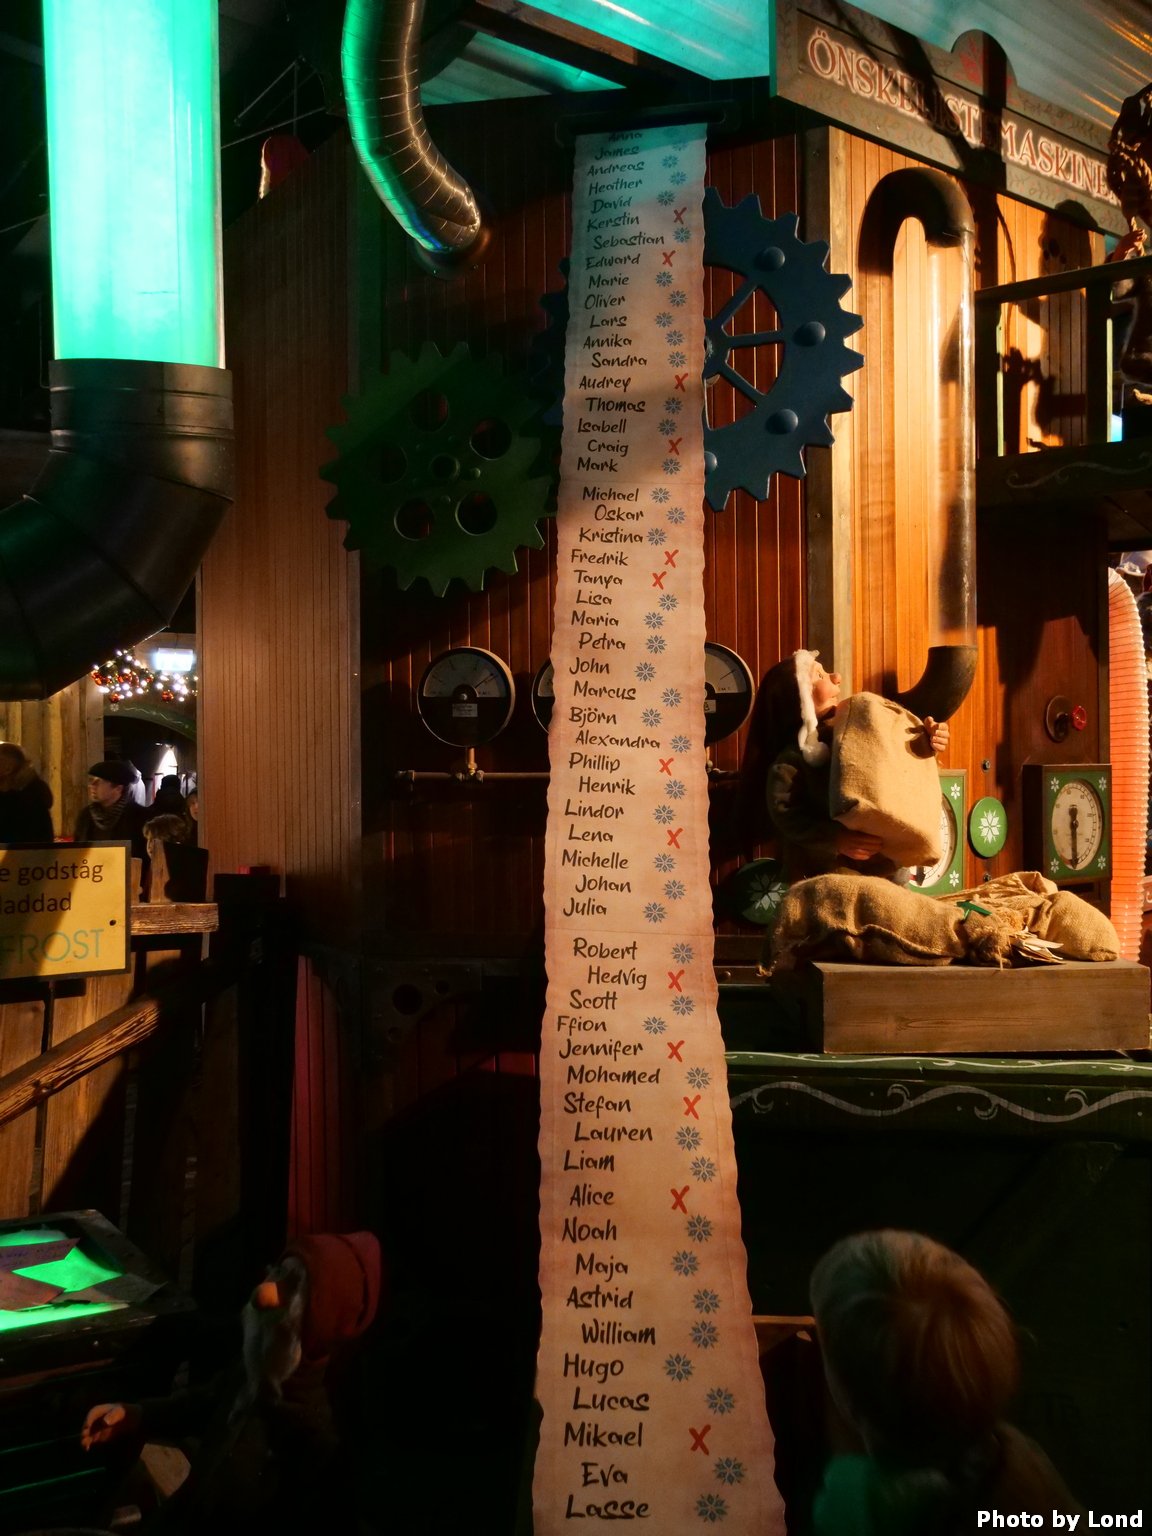 ÖNSKELISTEMASKINEN
Anna
James
Andreas
Heather
David
Kerstin X
Sebastian
Edward X
Marie
Oliver
Lars
Annika
Sandra
Audrey X
Thomas
Isabell
Craig X
Mark
Michael
Oskar
Kristina
Fredrik X
Tanya X
Lisa
Maria
Petra
John
Marcus
Björn
Alexandra
Phillip X
Henrik
Lindor
Lena X
Michelle
Johan
Julia
Robert
Hedvig X
Scott
Ffion
Jennifer X
Mohamed
Stefan X
Lauren
Liam
Alice X
Noah
Maja
Astrid
William
Hugo
Lucas
Mikael X
Eva
Lasse
e godståg
laddad
FROST
Photo by Lond